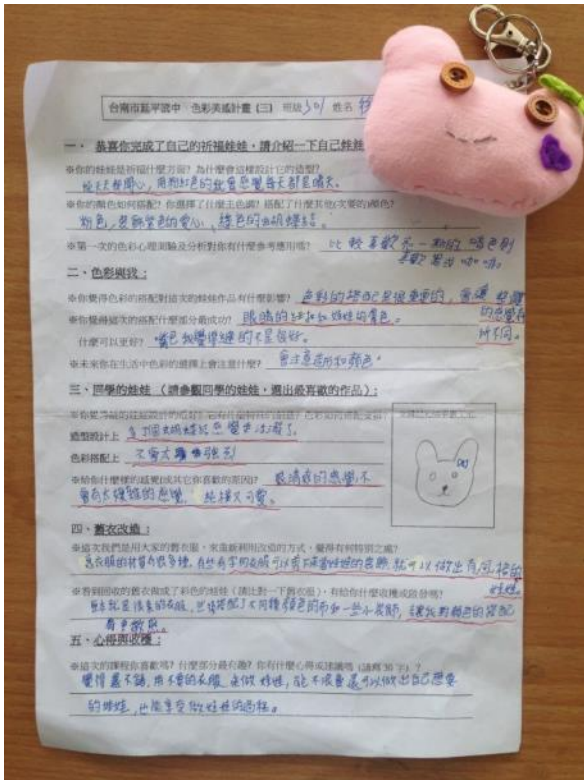 台南市延平國中‧色彩美感計畫（三） 班級 301 姓名
一、 恭喜你完成了自己的祈福娃娃，請介紹一下自己娃娃
※你的娃娃是祈福什麼方面？為什麼會這樣設計它的造型？
天天都開心，用粉紅色的就會感覺每天都是晴天。
※你的顏色如何搭配？你選擇了什麼主色調？搭配了什麼其他(次要的)顏色？
粉色，裝飾紫色的愛心，綠色的蝴蝶結。
※第一次的色彩心理測驗及分析對你有什麼參考應用嗎？ 比較喜歡
二、色彩與我：
※你覺得色彩的搭配對這次的娃娃作品有什麼影響？ 色彩的搭配是很重要的，會讓整體
的感覺有
所不同。
※你覺得這次的搭配什麼部分最成功？ 眼睛的 和娃娃的膚色。
什麼可以更好？ 嘴巴我覺得縫的不是很好。
※未來你在生活中色彩的選擇上會注意什麼？ 會注意造形和顏色。
三、同學的娃娃（請參觀同學的娃娃，選出最喜歡的作品）：
造型設計上 多了個蝴蝶結感覺更活潑了。
色彩搭配上 不會太強烈
※給你什麼樣的感覺(或其它你喜歡的原因)？ 很清爽的感覺不
會有太複雜的感覺，純樸又可愛。
四、舊衣改造：
※這次我們是用大家的舊衣服，來重新利用改造的方式，覺得有何特別之處？
舊衣服的材質有很多種，有些有字的衣服可以拿來當娃娃的裝飾，就可以做出有風格的
娃娃。
※看到回收的舊衣做成了彩色的娃娃（請比對一下舊衣服），有給你什麼收穫或啟發嗎？
原本就是後來的衣服，然後搭配了不同種顏色的布和一些小裝飾，讓我對顏色的搭配
五、心得與收穫：
※這次的課程你喜歡嗎？什麼部分最有趣？你有什麼心得或建議嗎（請寫 30 字）？
覺得還不錯，用不要的衣服來做娃娃，能不浪費還可以做出自己想要
的娃娃，也能享受做娃娃的過程。